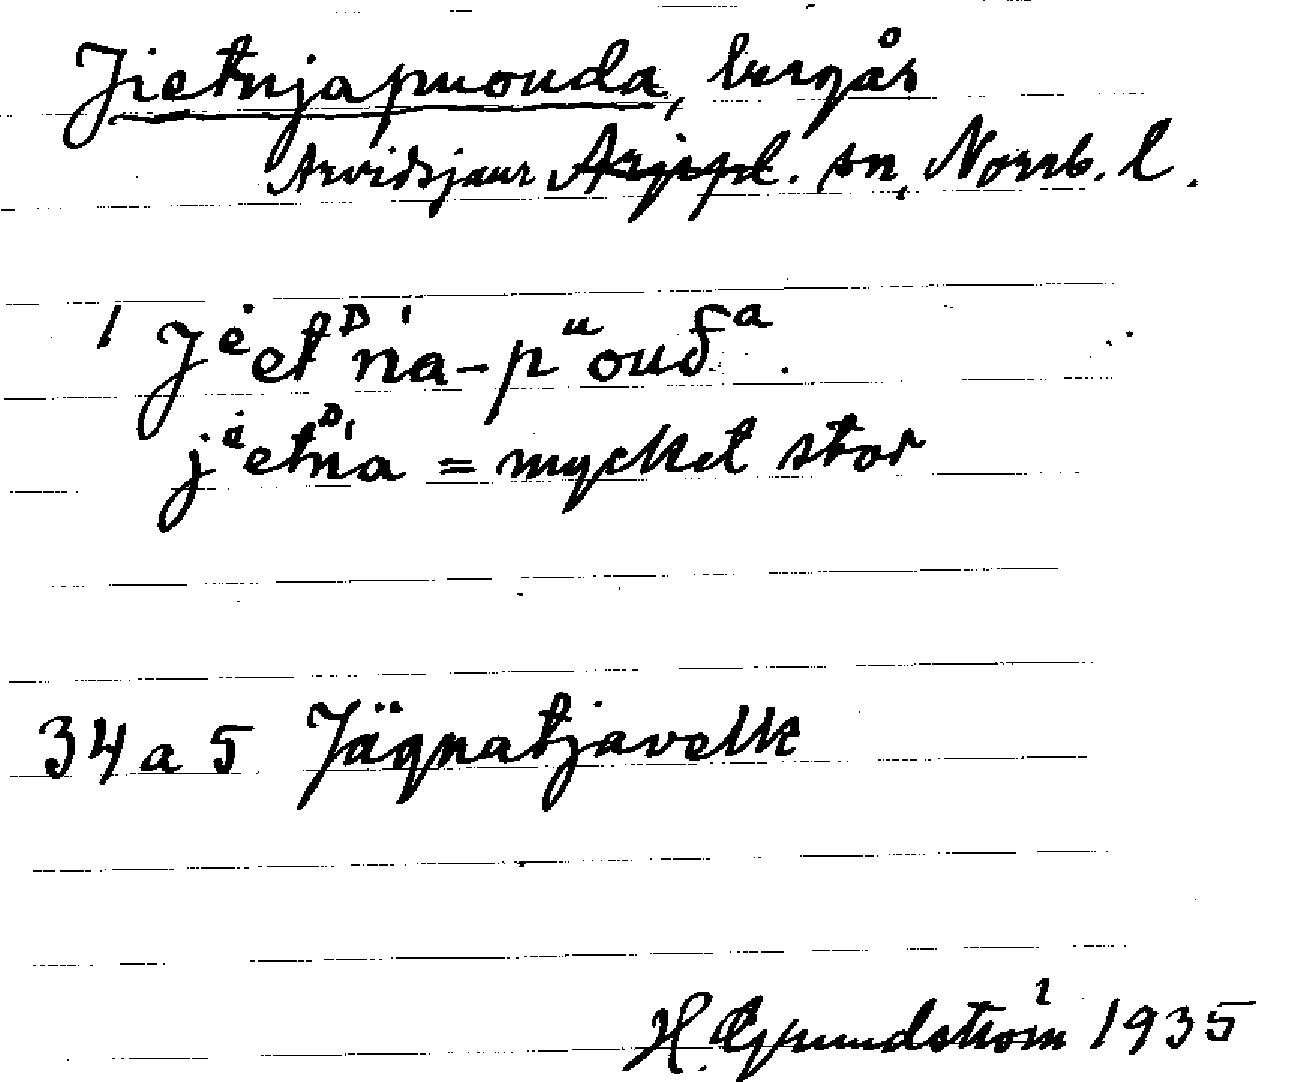 Jietnjapuouda, bergås
Arvidsjaur Arjepl. sn, Norrb. l.
1 Jėetᴰńa-pᵘouδᵃ.
jėetᴰńa = mycket stor
34 a 5 Jäqnatjavelk
H. Grundström 1935